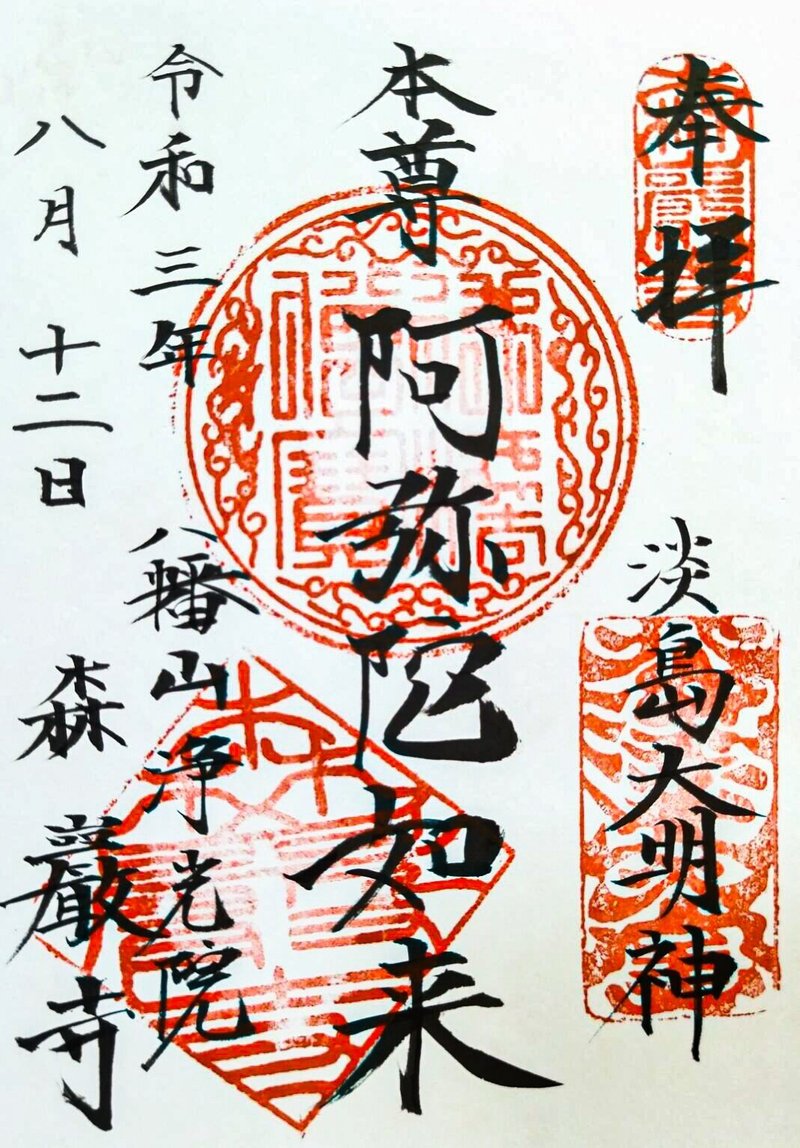 奉拝
淡島大明神
本尊 阿弥陀如来
令和三年
八月十二日
八幡山浄光院
森巖寺